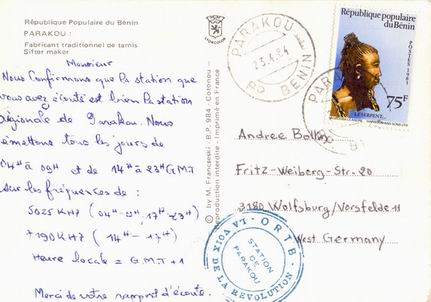 République Populaire du Bénin
PARAKOU :
Fabricant traditionnel de tamis
Sifter maker
Monsieur
Nous Confirmons que la station que
vous avez écouté est bien la station
régionale de Parakou. Nous
émettons tous les jours de
04H à 09H et de 14H à 23H GMT
sur les fréquences de :
5025 KHZ
7190 KHZ
Heure locale = GMT + 1
Merci de votre rapport d'écoute.
© by M. Franceski - B.P. 984 - Cotonou -
reproduction interdite - Imprimé en France
PARAKOU
23.4.84
RP BENIN
République populaire
du Bénin
POSTES 1983
75F
LE SERPENT
Andree Bollin
Fritz-Weiberg-Str. 20
3180 Wolfsburg/Vorsfelde 11
West Germany
ORTB
LA VOIX DE LA REVOLUTION
STATION
DE
PARAKOU